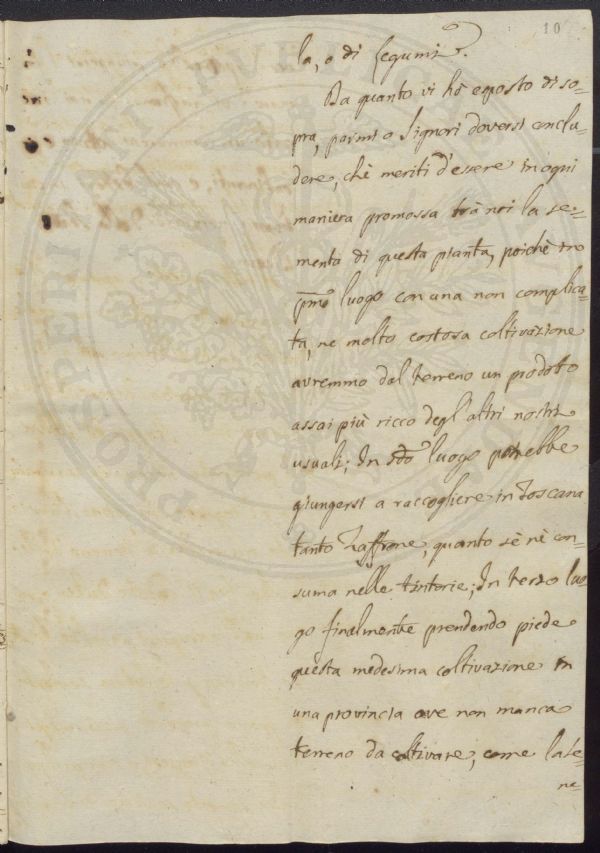 10
la, o di legumi.
Da quanto vi hò esposto di so-
pra, parmi o Signori doversi conclu-
dere, chè meriti d'essere in ogni
maniera promossa trà noi la se-
menta di questa pianta, poichè in
pmo luogo con una non complica-
ta, ne molto costosa coltivazione
avremmo dal terreno un prodotto
assai più ricco degl'altri nostri
usuali; In sdo luogo potrebbe
giungersi a raccogliere in Toscana
tanto Zaffrone, quanto sè nè con-
suma nelle tintorie; In terzo luo-
go finalmente prendendo piede
questa medesima coltivazione in
una provincia ove non manca
terreno da coltivare, come la se-
ne-